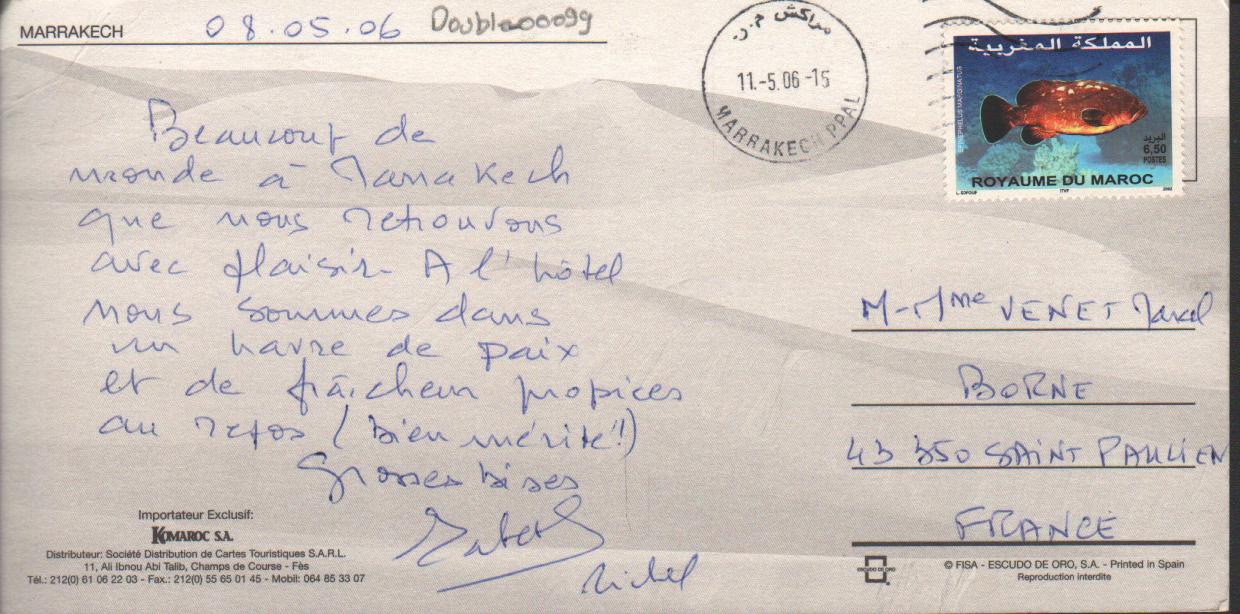 MARRAKECH
08.05.06 Doublaooo99
Beaucoup de
monde à Marrakech
que nous retrouvons
avec plaisir A l'hôtel
nous sommes dans
un havre de paix
et de fraîcheur propices
au repos (bien mérité!)
Grosses bises
Michel
Importateur Exclusif:
KOMAROC S.A.
Distributeur: Société Distribution de Cartes Touristiques S.A.R.L.
11, Ali Ibnou Abi Talib, Champs de Course - Fès
Tél.: 212(0) 61 06 22 03 - Fax.: 212(0) 55 65 01 45 - Mobil: 064 85 33 07
مراكش م.ر.
11.-5.06-15
MARRAKECH PPAL
المملكة المغربية
EPINEPHELUS MARGINATUS
البريد
6,50
POSTES
ROYAUME DU MAROC
ITVF 2002
M-Mme VENET
BORNE
43 350 SAINT PAULIEN
FRANCE
ESCUDO DE ORO
© FISA - ESCUDO DE ORO, S.A. - Printed in Spain
Reproduction interdite